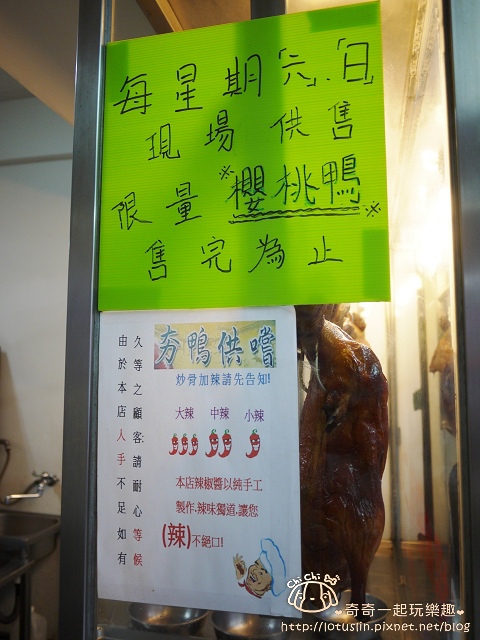 每星期「六」、「日」
現場供售
限量※櫻桃鴨※
售完為止
夯鴨供嚐
炒骨加辣請先告知!
大辣 中辣 小辣
本店辣椒醬以純手工
製作,辣味獨道,讓您
(辣)不絕口!
由於本店人手不足如有
久等之顧客:請耐心等候
ChiChi Bo
♥奇奇一起玩樂趣♥
http://lotuslin.pixnet.net/blog